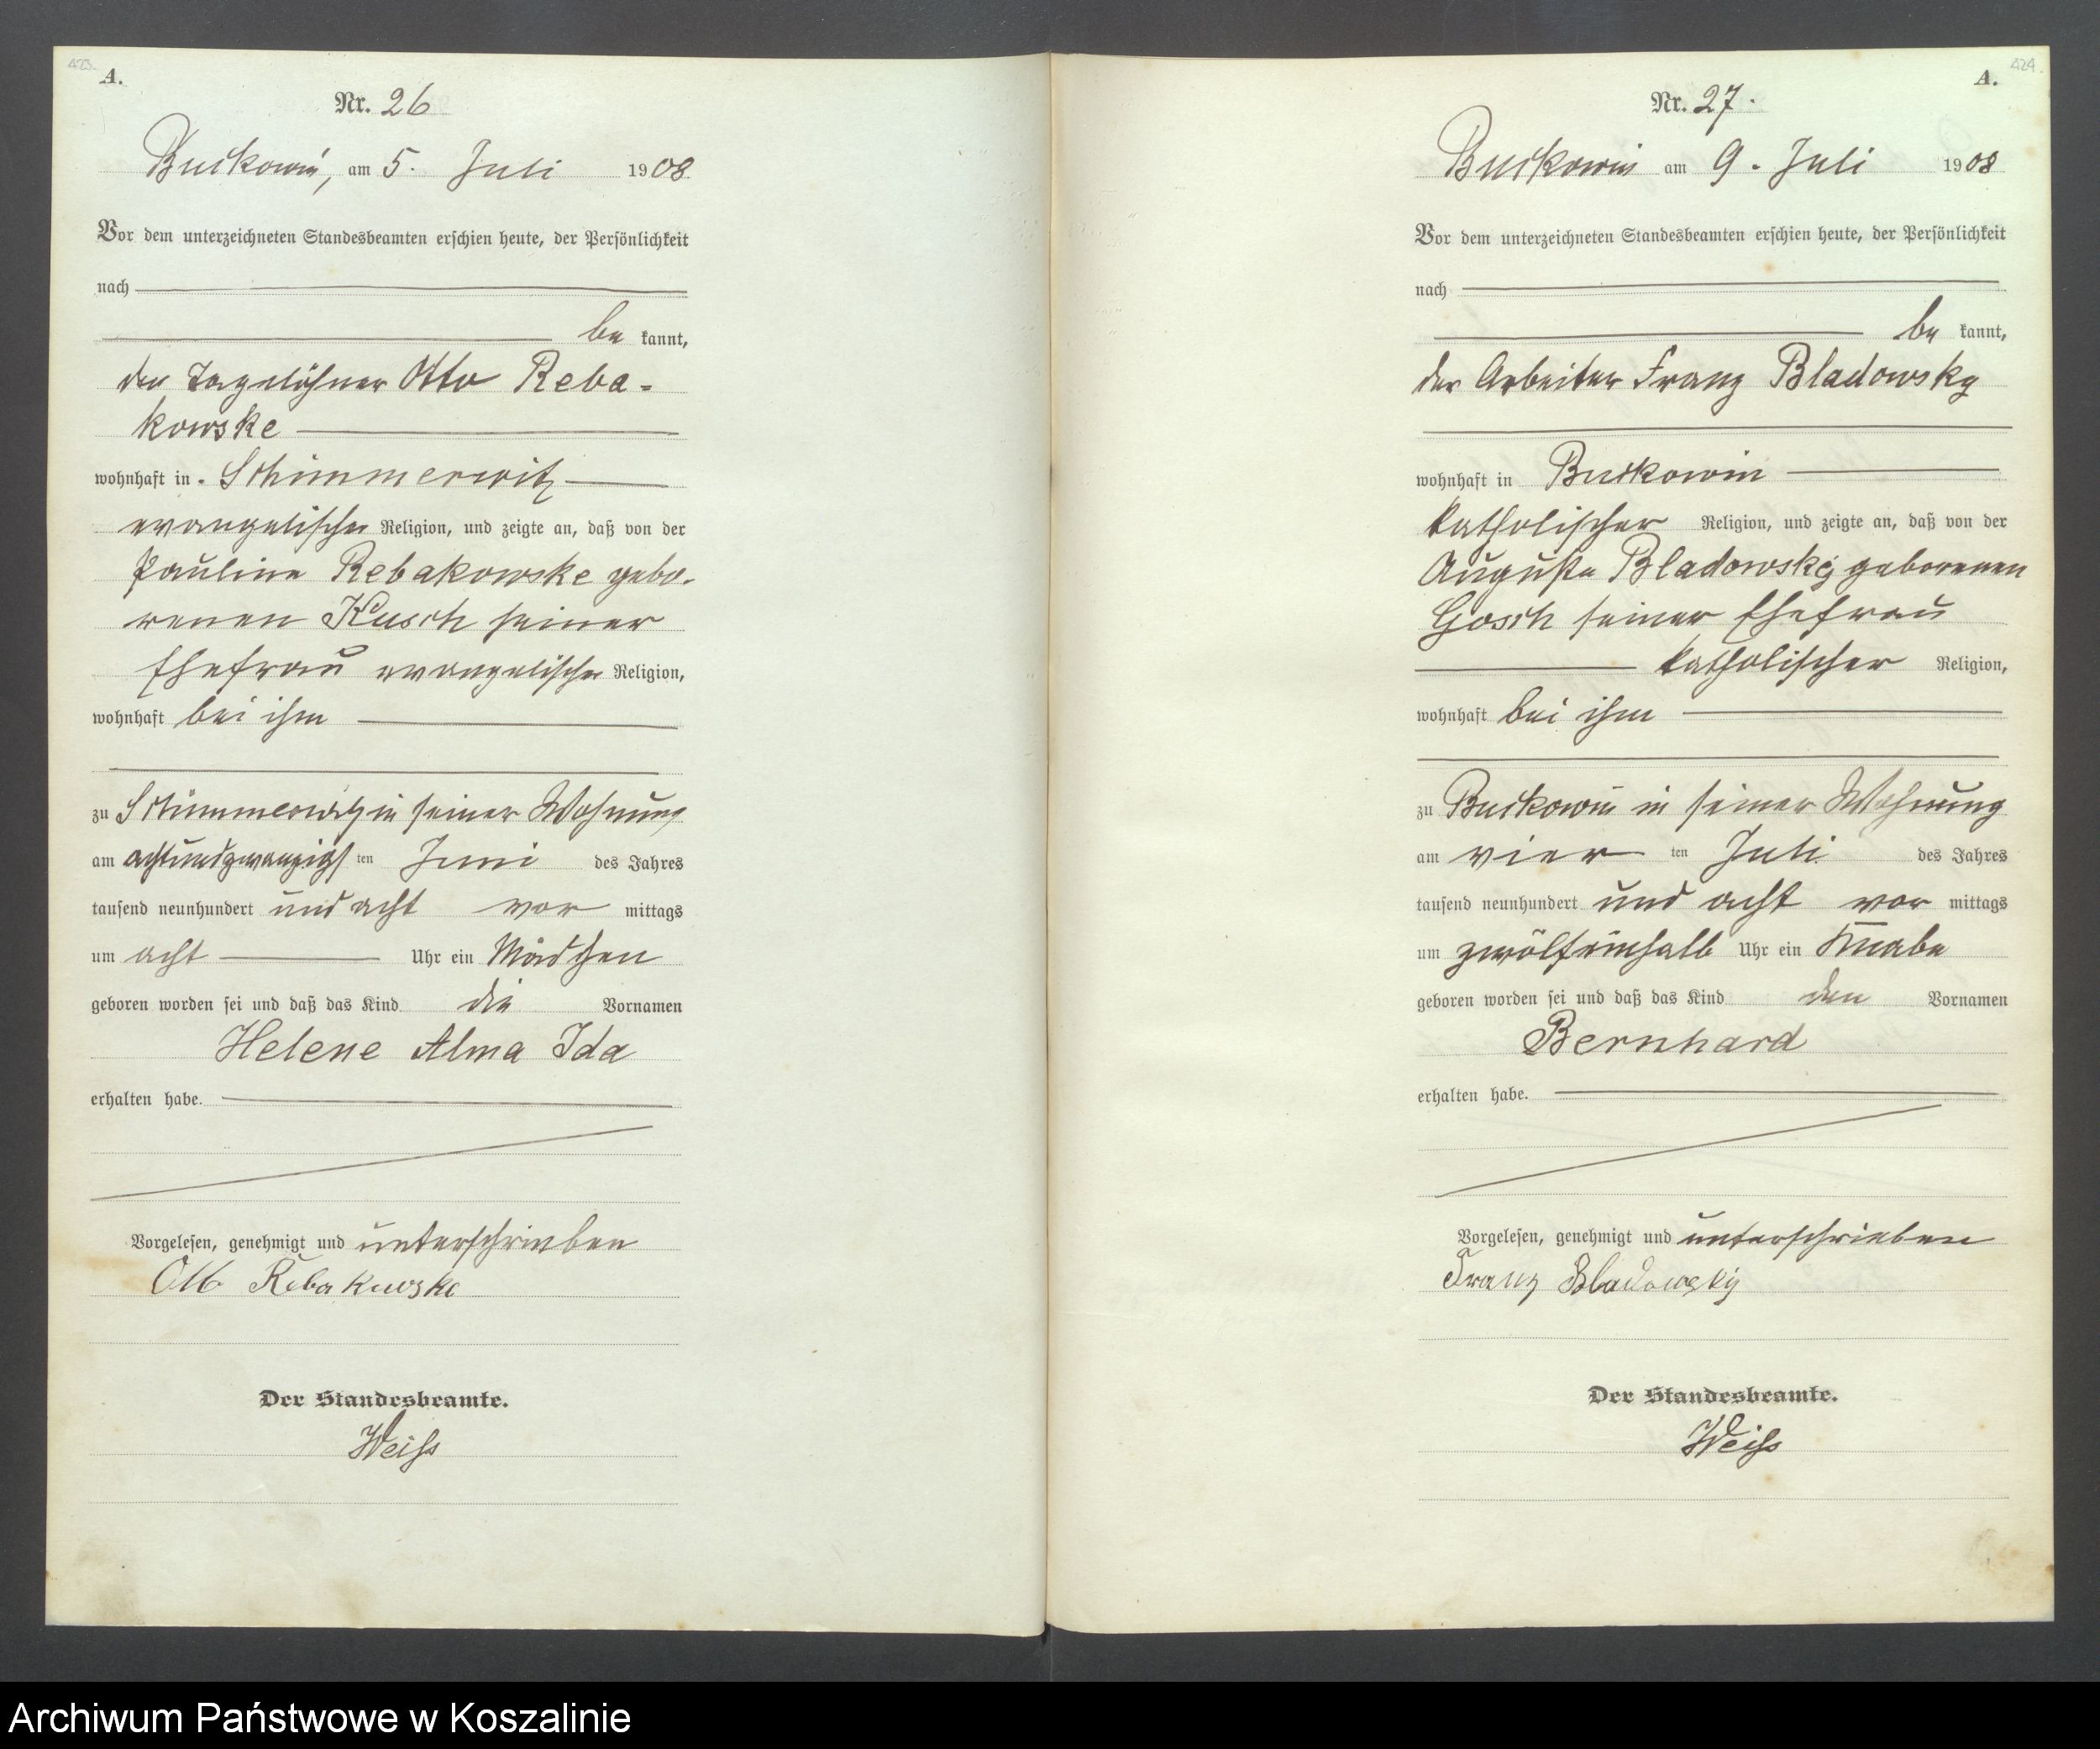 423.
A.
Nr. 26
Buckowin, am 5. Juli 1908
Vor dem unterzeichneten Standesbeamten erschien heute, der Persönlichkeit
nach
be kannt,
der Tagelöhner Otto Reba-
kowske
wohnhaft in Schimmerwitz
evangelischer Religion, und zeigte an, daß von der
Pauline Rebakowske gebo-
renen Kusch seiner
Ehefrau evangelischer Religion,
wohnhaft bei ihm
zu Schimmerwitz in seiner Wohnung
am achtundzwanzigsten Juni des Jahres
tausend neunhundert und acht vor mittags
um acht Uhr ein Mädchen
geboren worden sei und daß das Kind die Vornamen
Helene Alma Ida
erhalten habe.
Vorgelesen, genehmigt und unterschrieben
Otto Rebakowske
Der Standesbeamte.
Weiß
424.
A.
Nr. 27.
Buckowin am 9. Juli 1908
Vor dem unterzeichneten Standesbeamten erschien heute, der Persönlichkeit
nach
be kannt,
der Arbeiter Franz Bladowsky
wohnhaft in Buckowin
katholischer Religion, und zeigte an, daß von der
Auguste Bladowsky geborenen
Gosch seiner Ehefrau
katholischer Religion,
wohnhaft bei ihm
zu Buckowin in seiner Wohnung
am vier ten Juli des Jahres
tausend neunhundert und acht vor mittags
um zwölfeinhalb Uhr ein Knabe
geboren worden sei und daß das Kind den Vornamen
Bernhard
erhalten habe.
Vorgelesen, genehmigt und unterschrieben
Franz Bladowsky
Der Standesbeamte.
Weiß
Archiwum Państwowe w Koszalinie